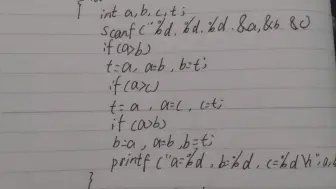 { int a,b,c,t;
scanf("%d,%d,%d,&a,&b &c)
if(a>b)
t=a, a=b, b=t;
if(a>c)
t=a, a=c, c=t;
if(a>b)
b=a, a=b, b=t;
printf("a=%d, b=%d, c=%d\n",a,b
}